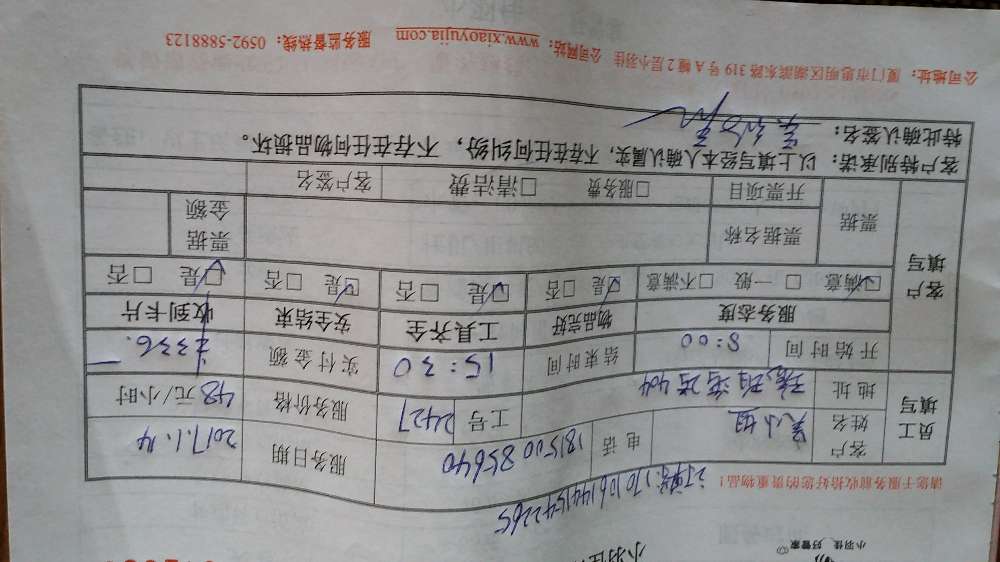 小羽佳 好管家
请您于服务前收拾好您的贵重物品!
员工填写
客户姓名 吴小姐 电话 18150085640 服务日期 2017.1.14
工号 2427 服务价格 48元/小时
地址
开始时间 8:00 结束时间 15:30 实付金额 336.
客户填写
服务态度 物品完好 工具齐全 安全结束 收到卡片
☑满意 □一般 □不满意 ☑是 □否 ☑是 □否 ☑是 □否 ☑是 □否
票据 票据名称 票据金额
开票项目 □服务费 □清洁费 客户签名
客户特别承诺: 以上填写经本人确认属实,不存在任何纠纷,不存在任何物品损坏。
特此确认签名:
公司地址: 厦门市思明区湖滨东路 319 号 A 幢 2 层小羽佳 公司网站: www.xiaoyujia.com 服务监督热线: 0592-5888123